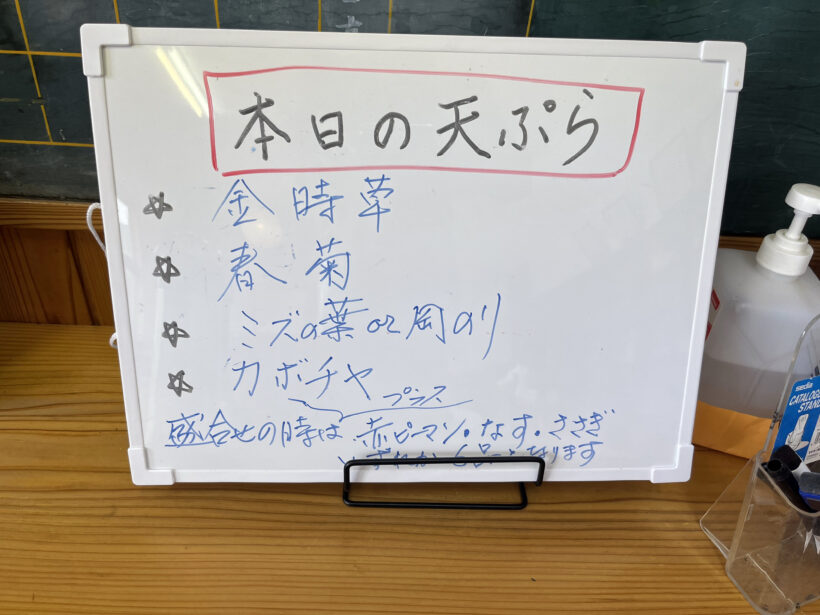 本日の天ぷら
☆ 金時草
☆ 春菊
☆ ミズの葉 or 岡のり
☆ カボチャ
プラス
盛合せの時は 赤ピーマン・なす・ささぎ
いずれか 6品になります
sedia
CATALOGUE
STAND